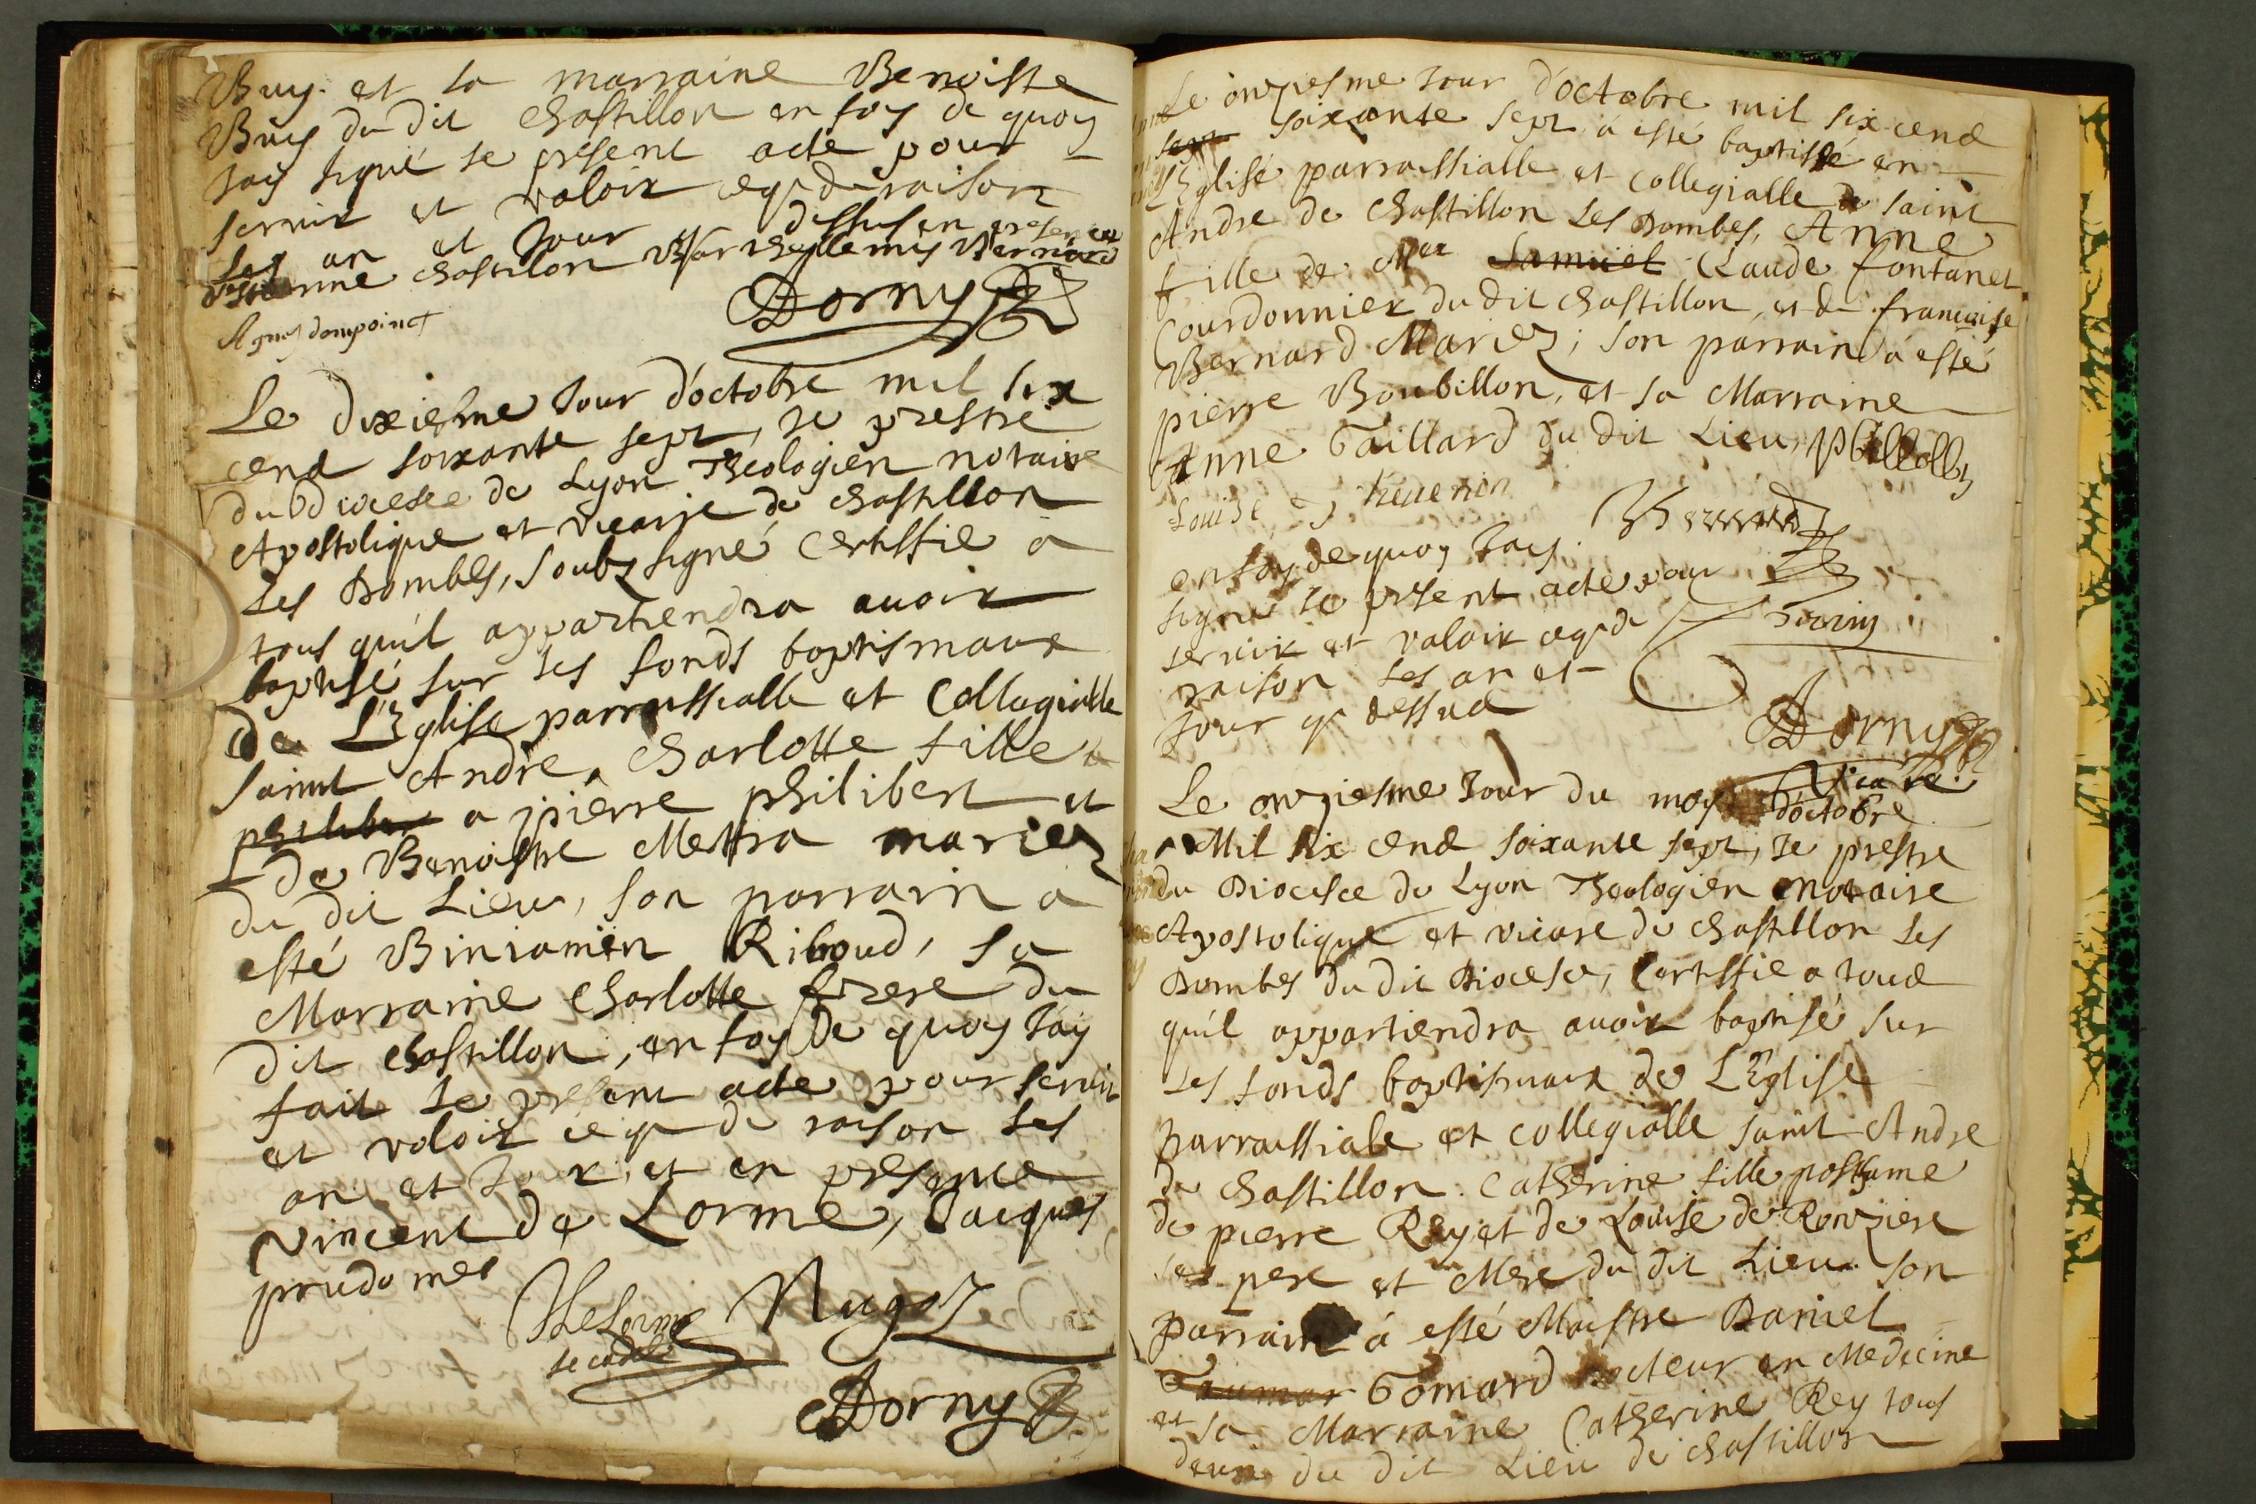 Buy et sa marraine Benoiste
Buy du dit chastillon en foy de quoy
Jay signé le present acte pour
servir et valoir ce que de raison
les an et Jour dessus en presence
chastilon Barthellemy Bernard
Dorny
Agnes dompoinct
Le dixiesme Jour d'octobre mil six
cend soixante sept, Je prestre
du diocese de Lyon Theologien notaire
Apostolique et vicaire de chastillon
Les Dombes, soubz signé certiffie a
tous qu'il appartiendra avoir
baptisé sur les fonds baptismaux
de L'Eglise parroissialle et Collegialle
saint André, Charlotte fille
philibert a pierre philibert et
de Benoistre Mettra mariez
du dit Lieu, son parrain a
esté Biniamin Riboud, sa
Marraine Charlotte frere du
dit chastillon, en foy de quoy Jay
fait le present acte pour servir
et valoir ce que de raison les
an et Jour, et en presence
vincent de Lorme, Jacques
prudomes
DeLorme Nugoz
le cadet
Dorny
Le onziesme Jour d'octobre mil six cend
sept soixante sept à esté baptissé en
L'Eglise parroissialle et collegialle de saint
Andre de chastillon Les Dombes, Anne
fille de Mre Samuel Claude fontanet
Courdonnier du dit chastillon, et de francoise
Bernard Mariez; son parrain à esté
pierre Boubillon, et sa Marraine
Anne Gaillard du dit Lieu,
Louise theuenin
en foy de quoy Jay
signé le present acte pour
servir et valoir ce que de
raison les an et
Jour que dessud
Dorny
Vicaire
Le onziesme Jour du moys d'octobre
Mil six cend soixante sept, Je prestre
du Diocese de Lyon Theologien Notaire
Apostolique et vicaire de chastillon Les
Dombes du dit Diocese, Certiffie a toud
qu'il appartiendra avoir baptisé sur
les fonds baptismaux de L'Eglise
parroissiale et collegialle saint Andre
de chastillon. Catherine fille posthume
de pierre Rey et de Louise de Ronziere
ses pere et Mere du dit Lieu. son
parrain à esté Maistre Daniel
Gomard Docteur en Medecine
et sa Marraine Catherine Rey tous
deux du dit Lieu de chastillon